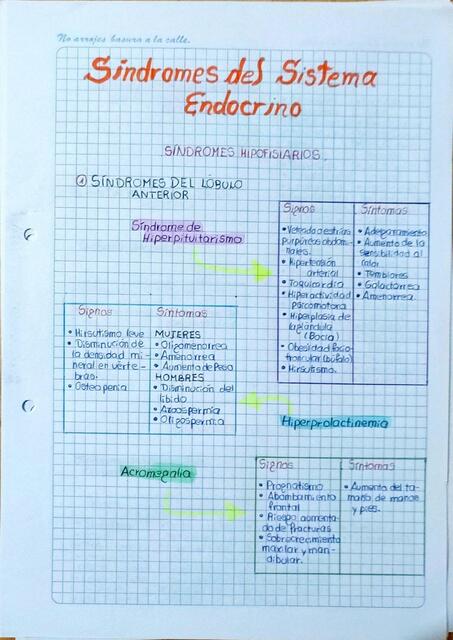 No arrojes basura a la calle.
Síndromes del Sistema
Endocrino
SÍNDROMES HIPOFISIARIOS.
① SÍNDROMES DEL LÓBULO
ANTERIOR
Síndrome de
Hiperpituitarismo
Signos
• Veteado o estrías
purpúreas abdomi-
nales.
• Hipertensión
arterial
• Taquicardia
• Hiperactividad
psicomotora
• Hiperplasia de
la glándula
(Bocio)
• Obesidad facio-
troncular (búfalo)
• Hirsutismo.
Síntomas
• Adelgazamiento
• Aumento de la
sensibilidad al
calor
• Temblores
• Galactorrea
• Amenorrea.
Signos
• Hirsutismo leve
• Disminución de
la densidad mi-
neral en vérte-
bras.
• Osteopenia
Síntomas
MUJERES
• Oligomenorrea
• Amenorrea
• Aumento de Peso
HOMBRES
• Disminución del
libido
• Azoospermia
• Oligospermia
Hiperprolactinemia
Acromegalia
Signos
• Prognatismo
• Abombamiento
frontal
• Riesgo aumenta-
do de fracturas
• Sobrecrecimiento
maxilar y man-
dibular.
Síntomas
• Aumento del ta-
maño de manos
y pies.